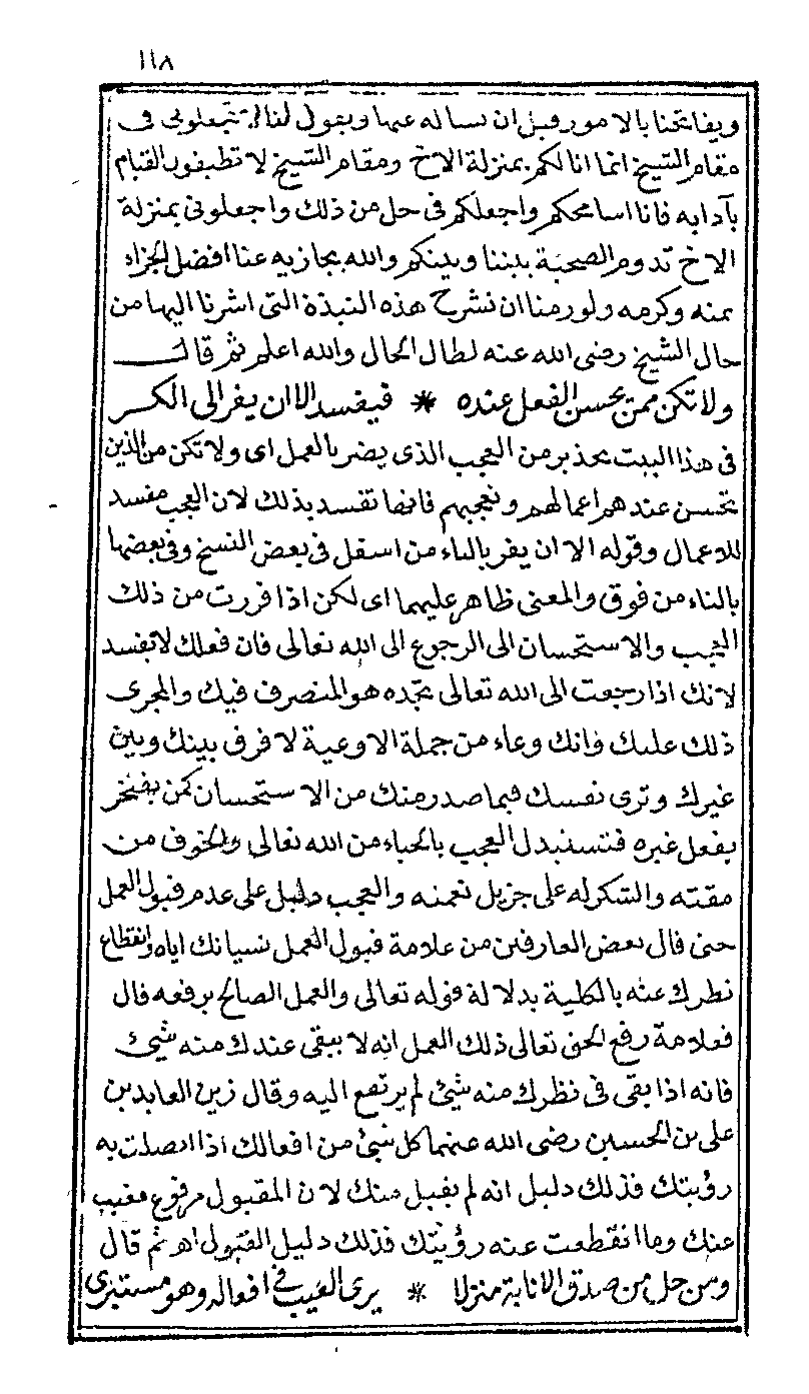 ١١٨
ويفاتحنا بالامور قبل ان نساله عنها ويقول لنا لا تجعلوني في
مقام الشيخ انما انا لكم بمنزلة الاخ ومقام الشيخ لا تطيقون القيام
بآدابه فانا اسامحكم واجعلكم في حل من ذلك واجعلوني بمنزلة
الاخ تدوم الصحبة بيننا وبينكم والله يجازيه عنا افضل الجزاء
بمنه وكرمه ولو رمنا ان نشرح هذه النبذة التي اشرنا اليها من
حال الشيخ رضى الله عنه لطال الحال والله اعلم ثم قال
ولا تكن ممن يحسن الفعل عنده * فيفسد الا ان يفر الى الكسر
في هذا البيت تحذير من العجب الذى يضر بالعمل اى ولا تكن من الذين
تحسن عندهم اعمالهم وتعجبهم فانها تفسد بذلك لان العجب مفسد
للاعمال وقوله الا ان يفر بالياء من اسفل في بعض النسخ وفي بعضها
بالتاء من فوق والمعنى ظاهر عليهما اى لكن اذا فررت من ذلك
العجب والاستحسان الى الرجوع الى الله تعالى فان فعلك لا يفسد
لانك اذا رجعت الى الله تعالى تجده هو المتصرف فيك والمجرى
ذلك عليك وانك وعاء من جملة الاوعية لا فرق بينك وبين
غيرك وترى نفسك فيما صدر منك من الاستحسان كمن يفتخر
بفعل غيره فتستبدل العجب بالحياء من الله تعالى والخوف من
مقته والشكر له على جزيل نعمته والعجب دليل على عدم قبول العمل
حتى قال بعض العارفين من علامة قبول العمل نسيانك اياه وانقطاع
نظرك عنه بالكلية بدلالة قوله تعالى والعمل الصالح يرفعه قال
فعلامة رفع الحق تعالى ذلك العمل انه لا يبقى عندك منه شيئ
فانه اذا بقى في نظرك منه شيئ لم يرتفع اليه وقال زين العابد بن
على بن الحسين رضى الله عنهما كل شيئ من افعالك اذا اتصلت به
رؤيتك فذلك دليل انه لم يقبل منك لان المقبول مرفوع مغيب
عنك وما انقطعت عنه رؤيتك فذلك دليل القبول اهـ ثم قال
ومن حل من صدق الانابة منزلا * يرى العيب في افعاله وهو مستبرى